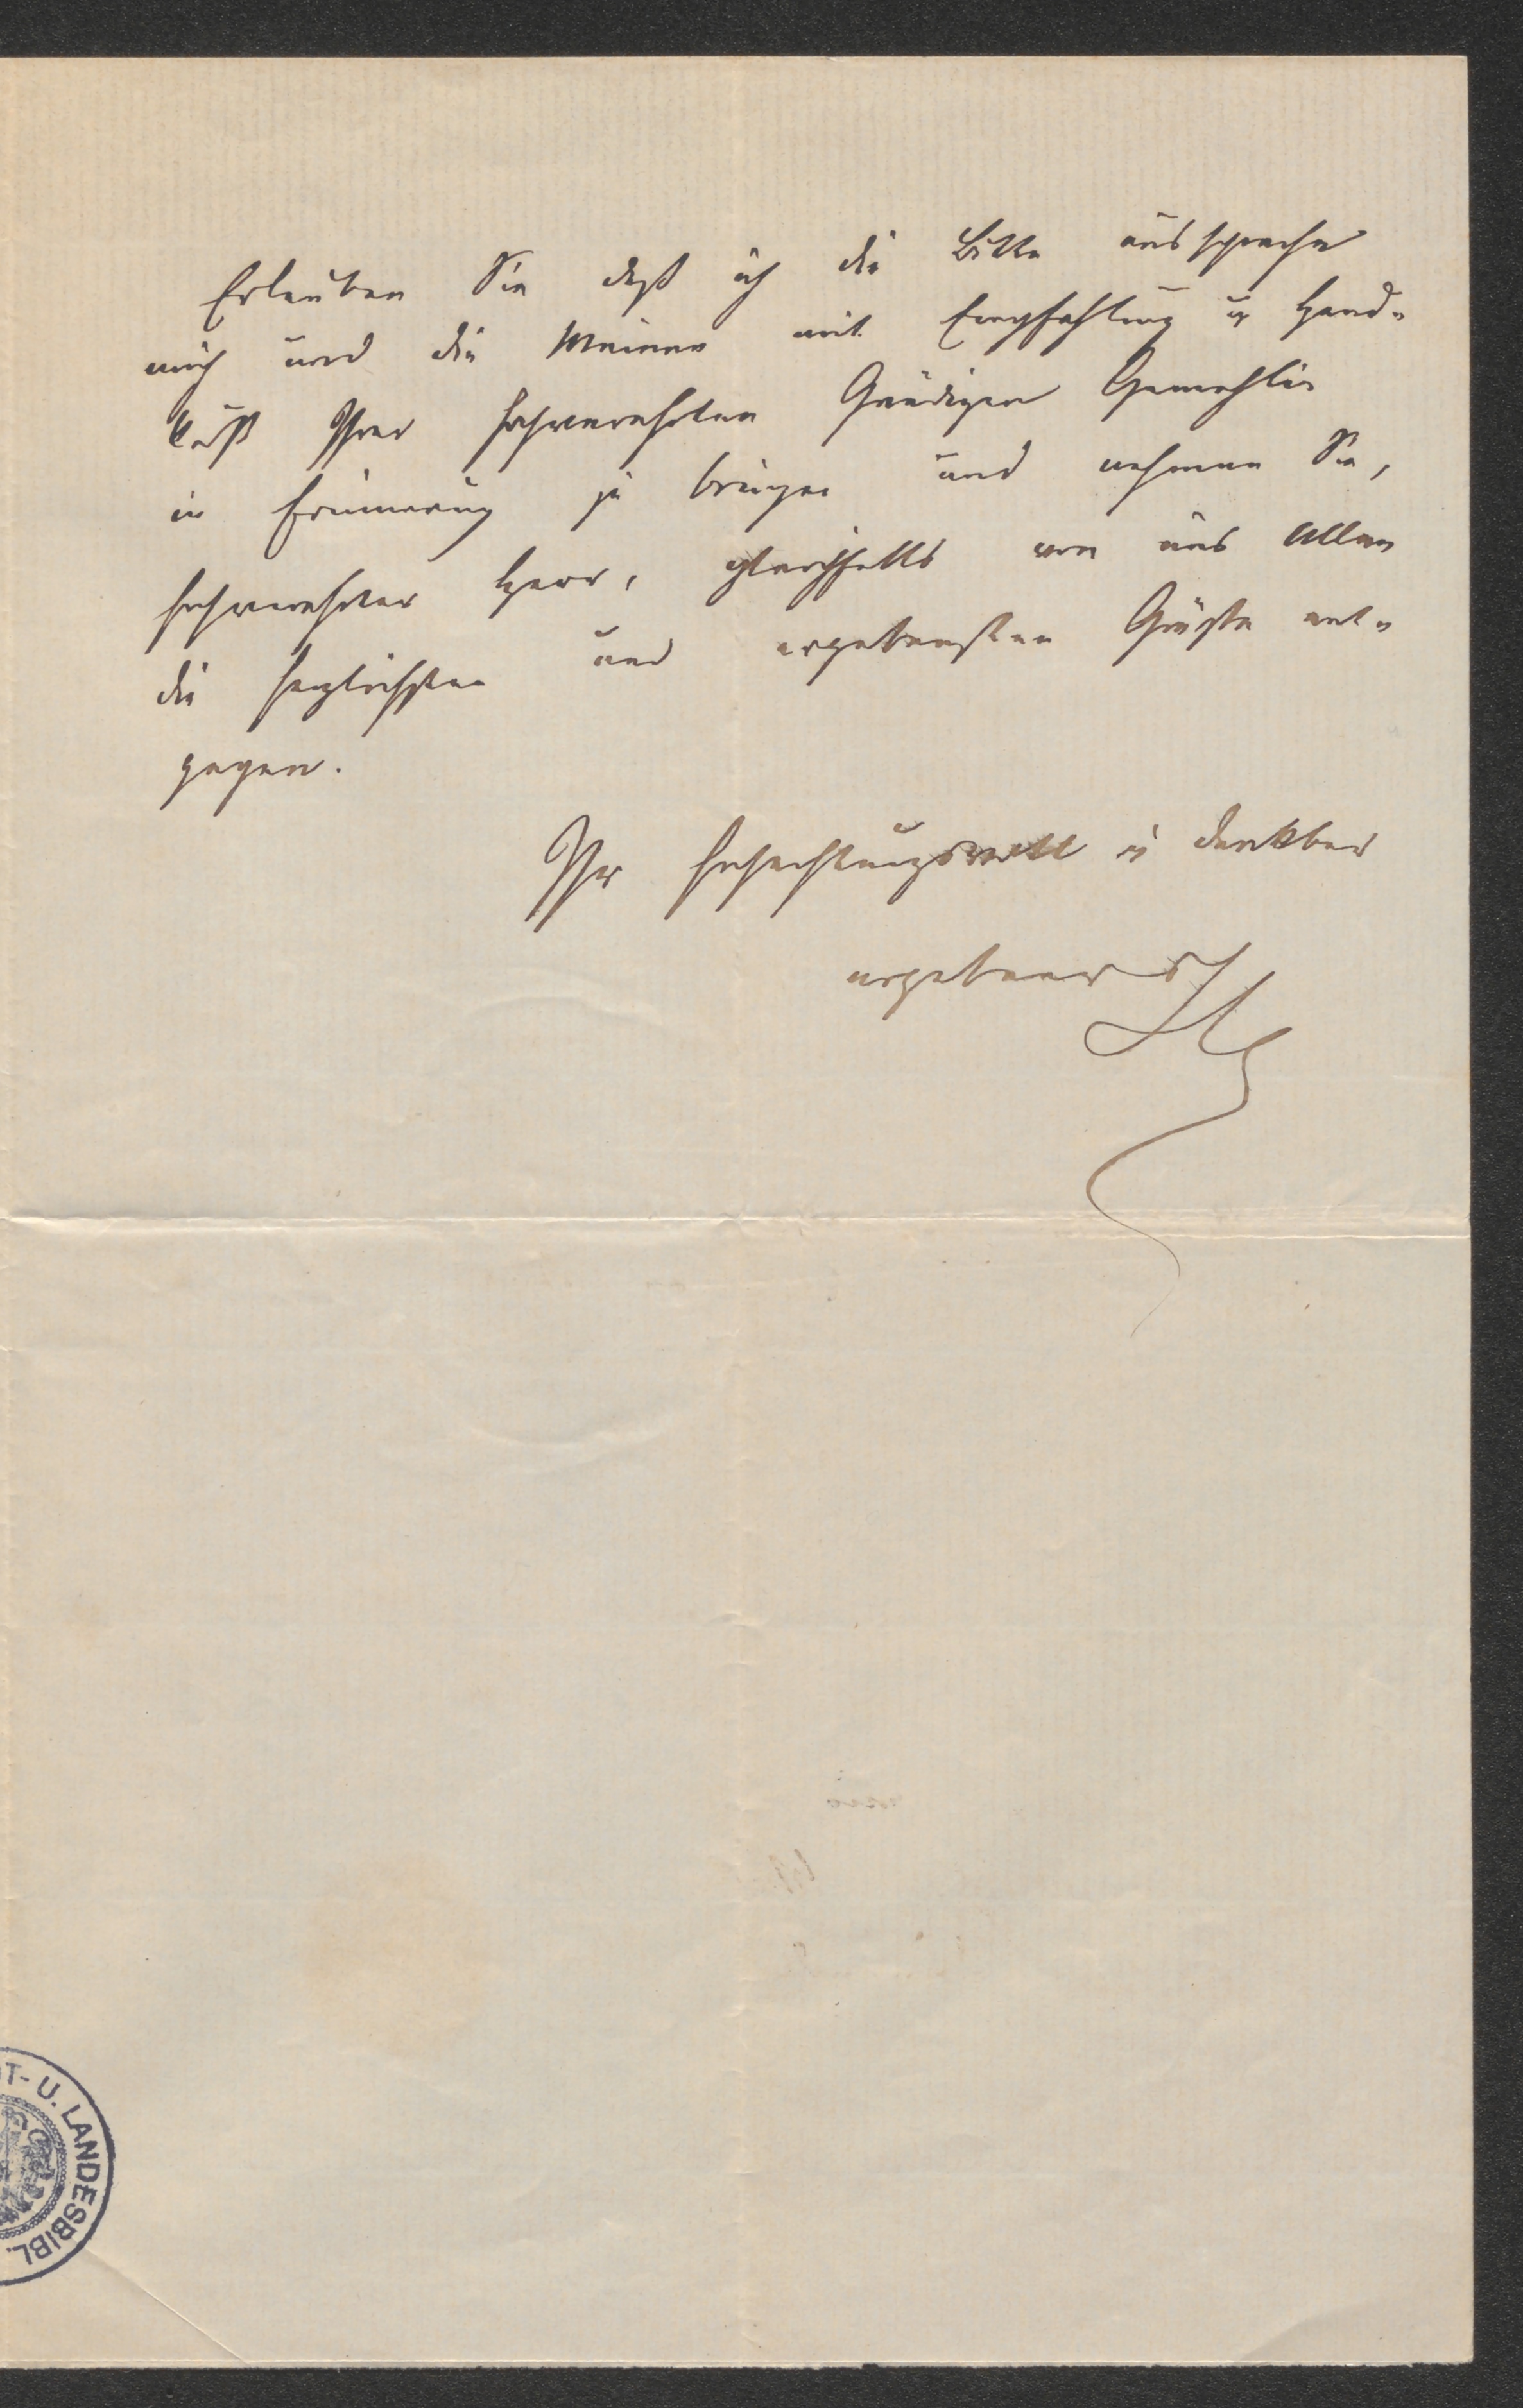 Erlauben Sie daß ich die Bitte ausspreche
mich und die Meinen mit Empfehlung u Hand-
kuß Ihrer hochverehrten Gnädigen Gemahlin
in Erinnerung zu bringen und nehmen Sie,
hochverehrter Herr, gleichfalls von uns Allen
die herzlichsten und ergebensten Grüße ent-
gegen.
Ihr hochachtungsvoll u dankbar
ergebener
T- U. LANDESBIBL.